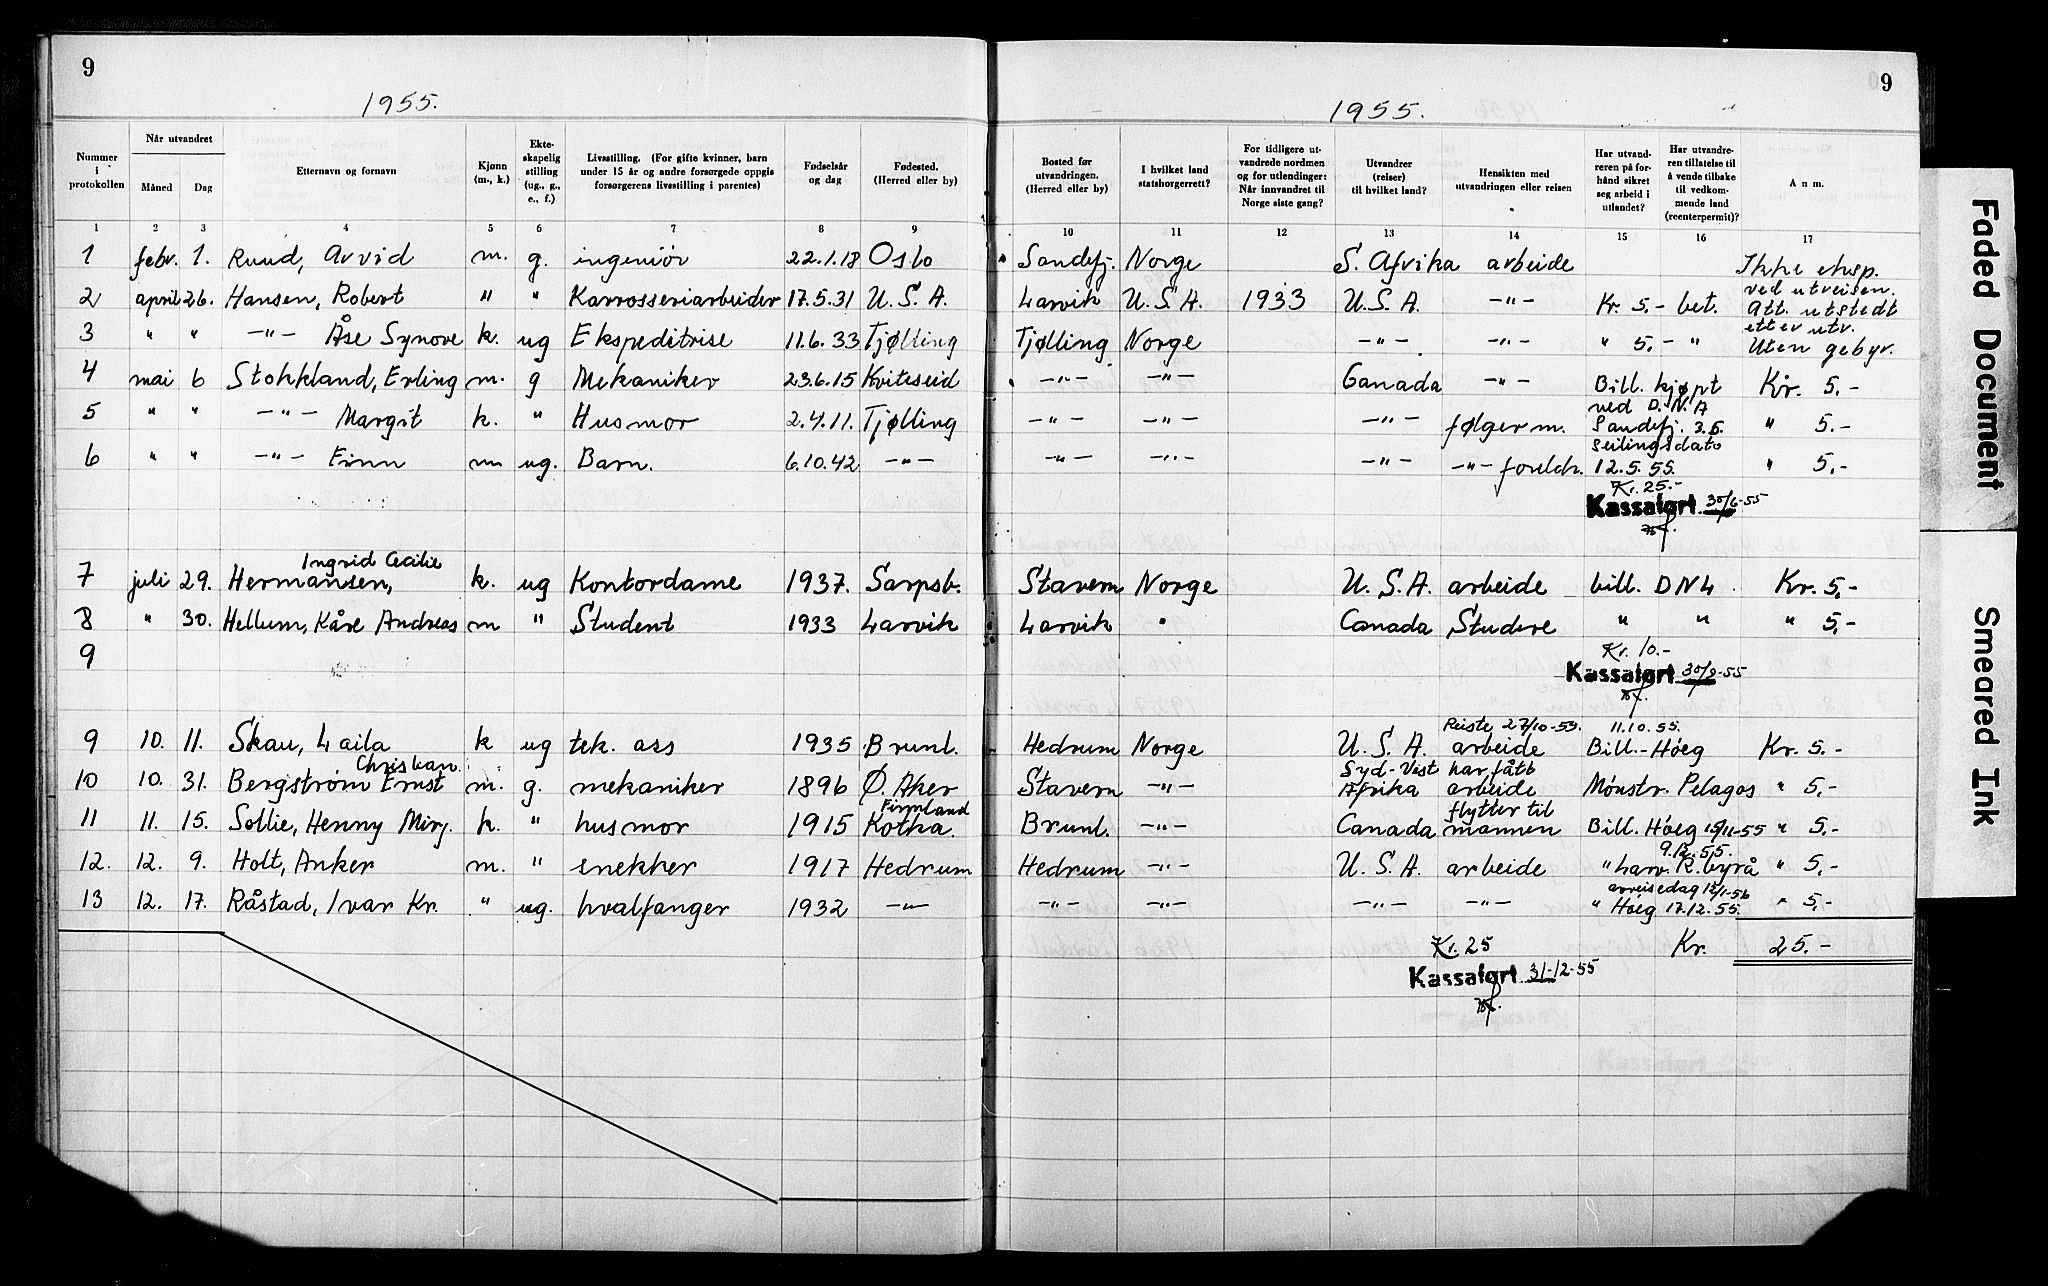 9
9
1955.
1955.
Nummer i protokollen | Når utvandret Måned | Dag | Etternavn og fornavn | Kjønn (m., k.) | Ekte-skapelig stilling (ug., g., e., f.) | Livsstilling. (For gifte kvinner, barn under 15 år og andre forsørgede oppgis forsørgerens livsstilling i parentes) | Fødselsår og dag | Fødested. (Herred eller by) | Bosted før utvandringen. (Herred eller by) | I hvilket land statsborgerrett? | For tidligere ut-vandrede nordmen og for utlendinger: Når innvandret til Norge siste gang? | Utvandrer (reiser) til hvilket land? | Hensikten med utvandringen eller reisen | Har utvand-reren på for-hånd sikret seg arbeid i utlandet? | Har utvandre-ren tillatelse til å vende tilbake til vedkom-mende land (reenterpermit)? | Anm.
1 | 2 | 3 | 4 | 5 | 6 | 7 | 8 | 9 | 10 | 11 | 12 | 13 | 14 | 15 | 16 | 17
1 | febr. | 1. | Ruud, Arvid | m. | g. | ingeniør | 22.1.18 | Oslo | Sandefj. | Norge | S. Afrika | arbeide | Ikke eksp. ved utreisen.
2 | april | 26. | Hansen, Robert | " | " | Karrosseriarbeider | 17.5.31 | U.S.A. | Larvik | U.S.A. | 1933 | U.S.A. | -"- | Kr. 5,- bet. | Att. utstedt etter utr.
3 | " | " | -"- Åse Synøve | k. | ug | Ekspeditrise | 11.6.33 | Tjølling | Tjølling | Norge | -"- | -"- | " 5,- " | Uten gebyr.
4 | mai | 6 | Stokkland, Erling | m. | g | Mekaniker | 23.6.15 | Kviteseid | -"- | -"- | Canada | -"- | Bill. kjøpt | Kr. 5,-
ved D.N.A
5 | " | " | -"- Margit | k. | " | Husmor | 2.4.11. | Tjølling | -"- | -"- | -"- | følger m. | Sandefj. 3.5. | " 5.-
seilingsdato
6 | " | " | -"- Finn | m | ug. | Barn. | 6.10.42 | -"- | -"- | -"- | -"- | -"- foreldr. | 12.5.55. | " 5,-
Kr. 25.-
Kassaført 30/6-55
Ingrid Cecilie
7 | juli | 29. | Hermansen, | k. | ug | Kontordame | 1937. | Sarpsb. | Stavern | Norge | U.S.A. | arbeide | bill. DNL. | Kr. 5,-
8 | " | 30. | Hellum, Kåre Andreas | m | " | Student | 1933 | Larvik | Larvik | " | Canada | Studere | " " | " 5,-
9 | Kr. 10.-
Kassaført 30/9-55
Reiste 27/10-55. | 11.10.55.
9 | 10. | 11. | Skau, Laila | k | ug | tek. ass | 1935 | Brunl. | Hedrum | Norge | U.S.A. | arbeide | Bill.-Høeg | Kr. 5.-
Christian | Syd-Vest | har fått
10 | 10. | 31. | Bergstrøm Ernst | m. | g. | mekaniker | 1896 | Ø. Aker | Stavern | -"- | Afrika | arbeide | Mønstr. Pelagos | " 5,-
Finnland | flytter til
11 | 11. | 15. | Sollie, Henny Mirj. | k. | " | husmor | 1915 | Kotka. | Brunl. | -"- | Canada | mannen | Bill. Høeg 15/11-55 | " 5,-
9.12.55.
12. | 12. | 9. | Holt, Anker | m. | " | snekker | 1917 | Hedrum | Hedrum | -"- | U.S.A. | arbeide | " Larv. R. byrå | " 5,-
avreisedag 12/1-56
13 | 12. | 17. | Råstad, Ivar Kr. | " | ug. | hvalfanger | 1932 | -"- | -"- | -"- | -"- | -"- | " Høeg 17.12.55. | " 5,-
Kr. 25 | Kr. 25.-
Kassaført 31-12-55
Faded Document
Smeared Ink